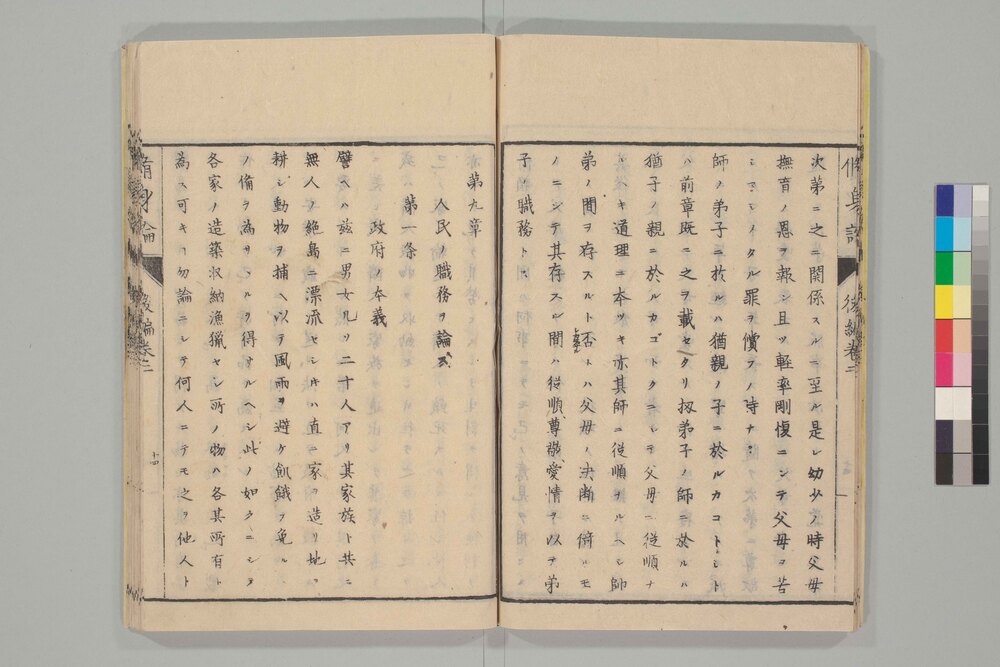 次第ニ之ニ関係スルニ至ル是レ幼少ノ時父母
撫育ノ恩ヲ報シ且ツ軽率剛愎ニシテ父母ヲ苦
シマシメタル罪ヲ償フノ時ナリ
師ノ弟子ニ於ルハ猶親ノ子ニ於ルカコトシト
ハ前章既ニ之ヲ載セタリ扨弟子ノ師ニ於ルハ
猶子ノ親ニ於ルカゴトクニシテ父母ニ従順ナ
ルヘキ道理ニ本ツキ亦其師ニ従順ナルヘシ師
弟ノ間ヲ存スルト否トハ父母ノ決断ニ倚ルモ
ノニシテ其存スル間ハ従順尊敬愛情ヲ以テ弟
子ノ職務トス
修身論 後編巻二
第九章
人民ノ職務ヲ論ス
第一条
政府ノ本義
譬ヘハ茲ニ男女凡ソ二十人アリ其家族ト共ニ
無人ノ絶島ニ漂流セシトキハ直ニ家ヲ造リ地ヲ
耕シ動物ヲ捕ヘ以テ風雨ヲ避ケ飢餓ヲ免ル
ノ備ヲ為サヽルヲ得サルヘシ此ノ如クニシテ
各家ノ造築収納漁猟セシ所ノ物ハ各其所有ト
為ス可キコ勿論ニシテ何人ニテモ之ヲ他人ト
脩身論 後編巻二 十四